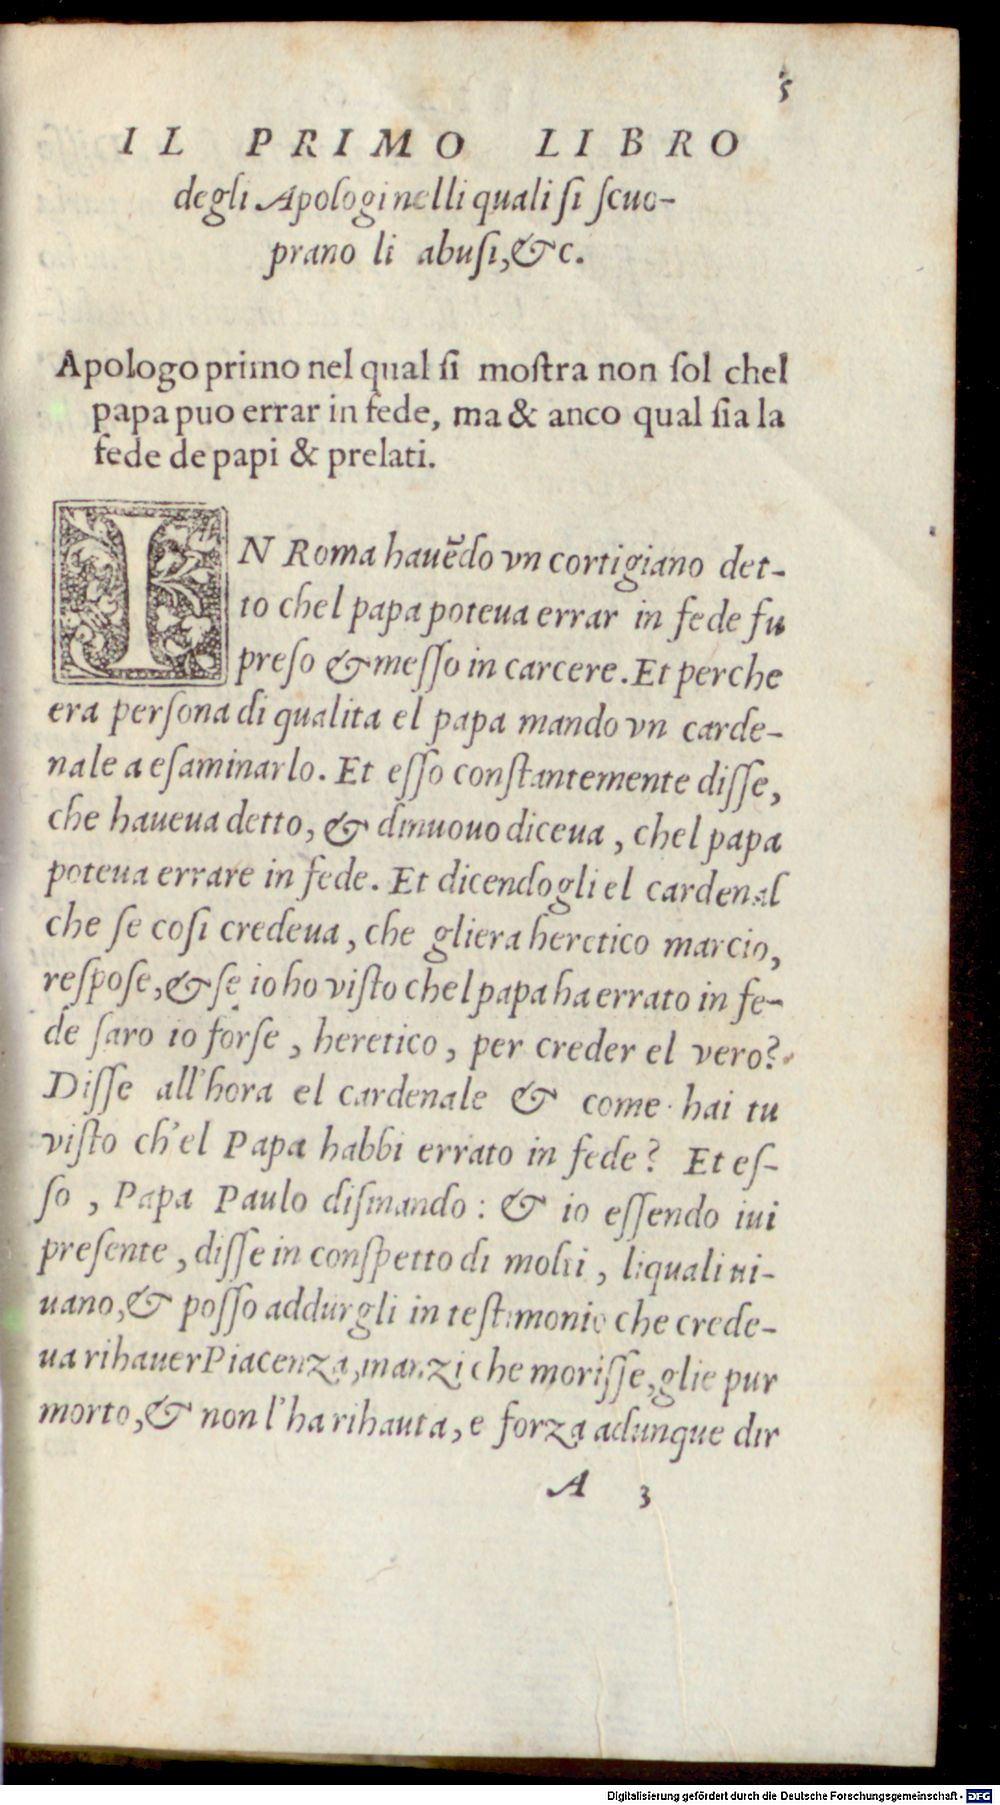 5
IL PRIMO LIBRO
degli Apologi nelli quali si scuo-
prano li abusi, & c.
Apologo primo nel qual si mostra non sol chel
papa puo errar in fede, ma & anco qual sia la
fede de papi & prelati.
IN Roma havẽdo vn cortigiano det-
to chel papa poteua errar in fede fu
preso & messo in carcere. Et perche
era persona di qualita el papa mando vn carde-
nale a esaminarlo. Et esso constantemente disse,
che haueua detto, & dinuouo diceua, chel papa
poteua errare in fede. Et dicendogli el cardenal
che se cosi credeua, che gliera heretico marcio,
respose, & se io ho visto chel papa ha errato in fe-
de saro io forse, heretico, per creder el vero?
Disse all'hora el cardenale & come hai tu
visto ch'el Papa habbi errato in fede? Et es-
so, Papa Paulo dismando: & io essendo iui
presente, disse in conspetto di molti, liquali ui-
uano, & posso addurgli in testimonio che crede-
ua rihauer Piacenza, inanzi che morisse, glie pur
morto, & non l'ha rihauta, e forza adunque dir
A 3
Digitalisierung gefördert durch die Deutsche Forschungsgemeinschaft - DFG